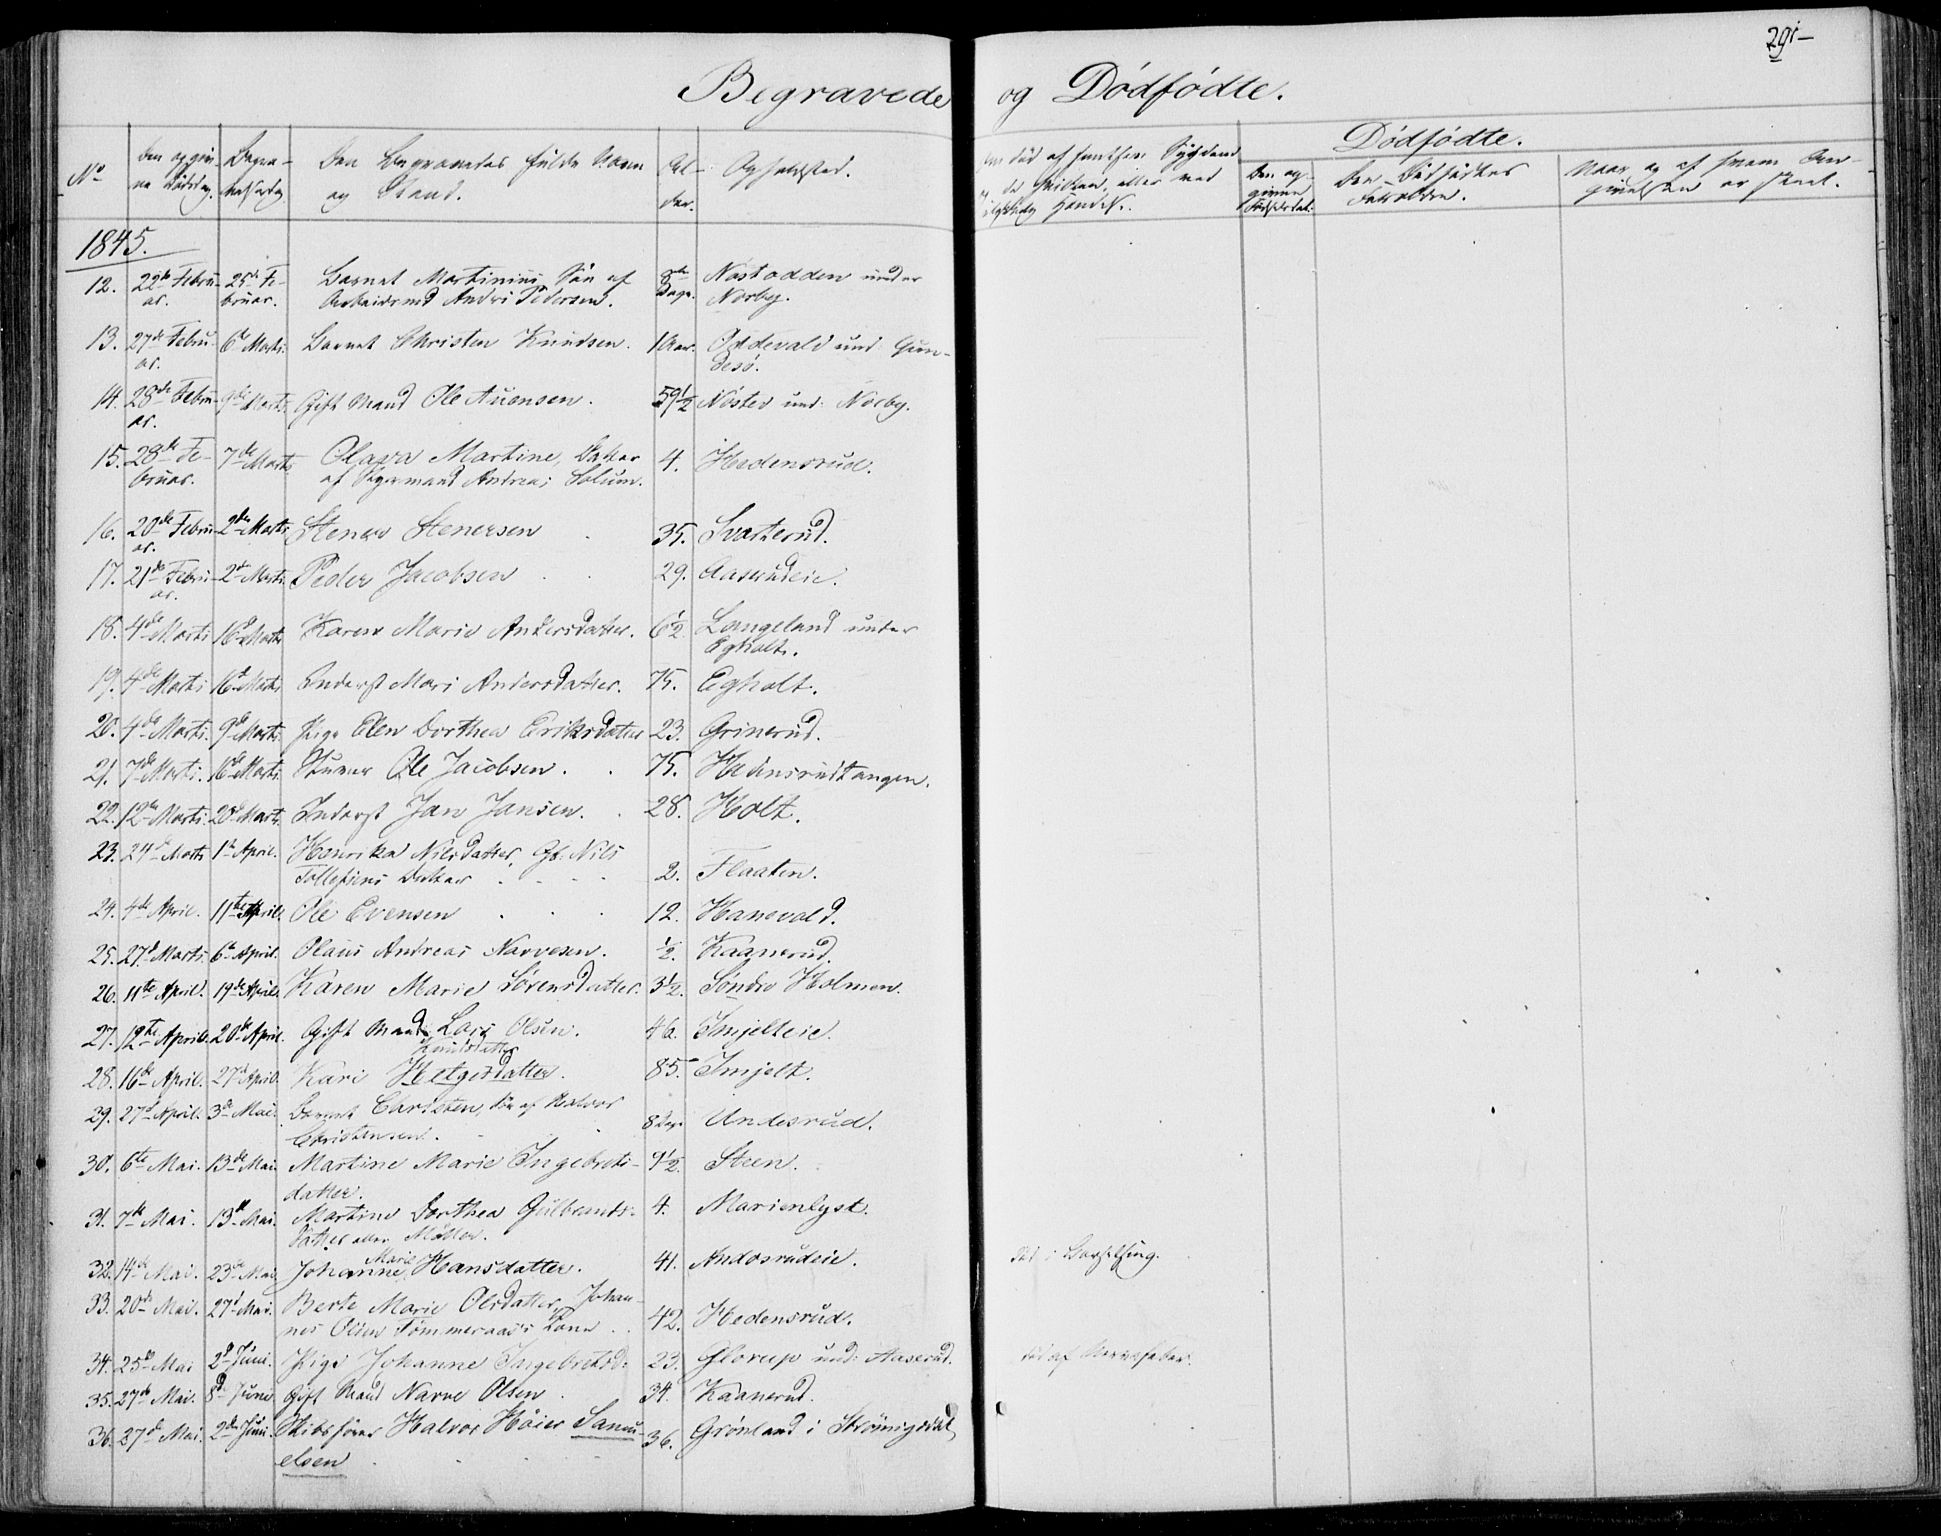 291
Begravede og Dødfødte.
No
Den Begravedes fulde Navn og Stand.
Al-der.
Opholdsted.
Dødfødte.
Den Dødfødtes Forældre.
Naar og af hvem An-givelsen er skeet.
1845.
12. 22de Febru-ar. 25de Fe-bruar. Barnet Martinius, Søn af Arbeidsmd Andri Pedersen. 8te Dage. Nøstodden under Norby.
13. 27de Febru-ar. 6te Marts. Barnet Christen Knudsen. 1 Aar. Oddevald und:
14. 28de Febru-ar. 9de Marts. Gift Mand Ole Auensen. 59½ Nøsted und: Norby.
15. 28de Fe-bruar. 7de Marts Olava Martine, Datter af Styrmand Andreas Solum. 4. Hedensrud.
16. 20de Febru-ar. 2den Marts. Stener Stenersen 35. Svarterud.
17. 21de Febru-ar. 2d Marts. Peder Jacobsen 29. Aaserudeie.
18. 4de Marts 16d Marts Karen Marie Andersdatter. 6½ Langeland under Egholt.
19. 4de Marts 16d Marts Inderst Mari Andersdatter. 75. Egholt.
20. 4de Marts. 9de Marts. Pige Elen Dorthea Eriksdatter 23. Grinerud.
21. 7de Marts. 16de Marts. Ole Jacobsen. 75. Hedensrudtangen.
22. 12te Marts. 20d Marts. Inderst Jan Jansen. 28. Holt.
23. 24d Marts 1te April. Henrika Nilsdatter, Gb: Nils
Tollefsens Datter 2. Flaaten.
24. 4de April. 11te April. Ole Evensen 12. Hanevold.
25. 27d Marts. 6te April. Olaus Andreas Narvesen. ½. Kaanerud.
26. 11te April. 19de April. Karen Marie Sørensdatter. 3½. Søndre Holmen.
27. 12te April. 20de April. Gift Mand Lars Olsen. 46. Smjelteie.
Knudsdatter
28. 16de April. 27d April. Kari Helgesdatter. 85. Smjelt.
29. 27d April. 3de Mai. Barnet Christen, Søn af Halvor
Christensen. 8 Dage Undesrud.
30. 6te Mai. 13de Mai. Martine Marie Ingebrets-
datter. 9½. Steen.
31. 7de Mai. 13d Mai. Martine Dorthea Gulbrands-
datter eller Møller. 4. Marienlyst.
32. 14de Mai. 23de Mai Johanne Marie Hansdatter. 41. Andosrudeie. død i Barselseng.
33. 20de Mai. 27d Mai. Berte Marie Olsdatter, Johan-
nes Olsen Tømmeraas's Kone 42. Hedensrud.
34. 25de Mai 2d Juni. Pige Johanne Ingebretsd: 23. Glorup und: Aaserud. død af Nervefeber.
35. 27de Mai. 8d Juni Gift Mand Narve Olsen 34. Kaanerud.
36. 27d Mai. 2den Juni. Skibsfører Halvor Høier Samu-
elsen 36. Grønland i Strømsgodset